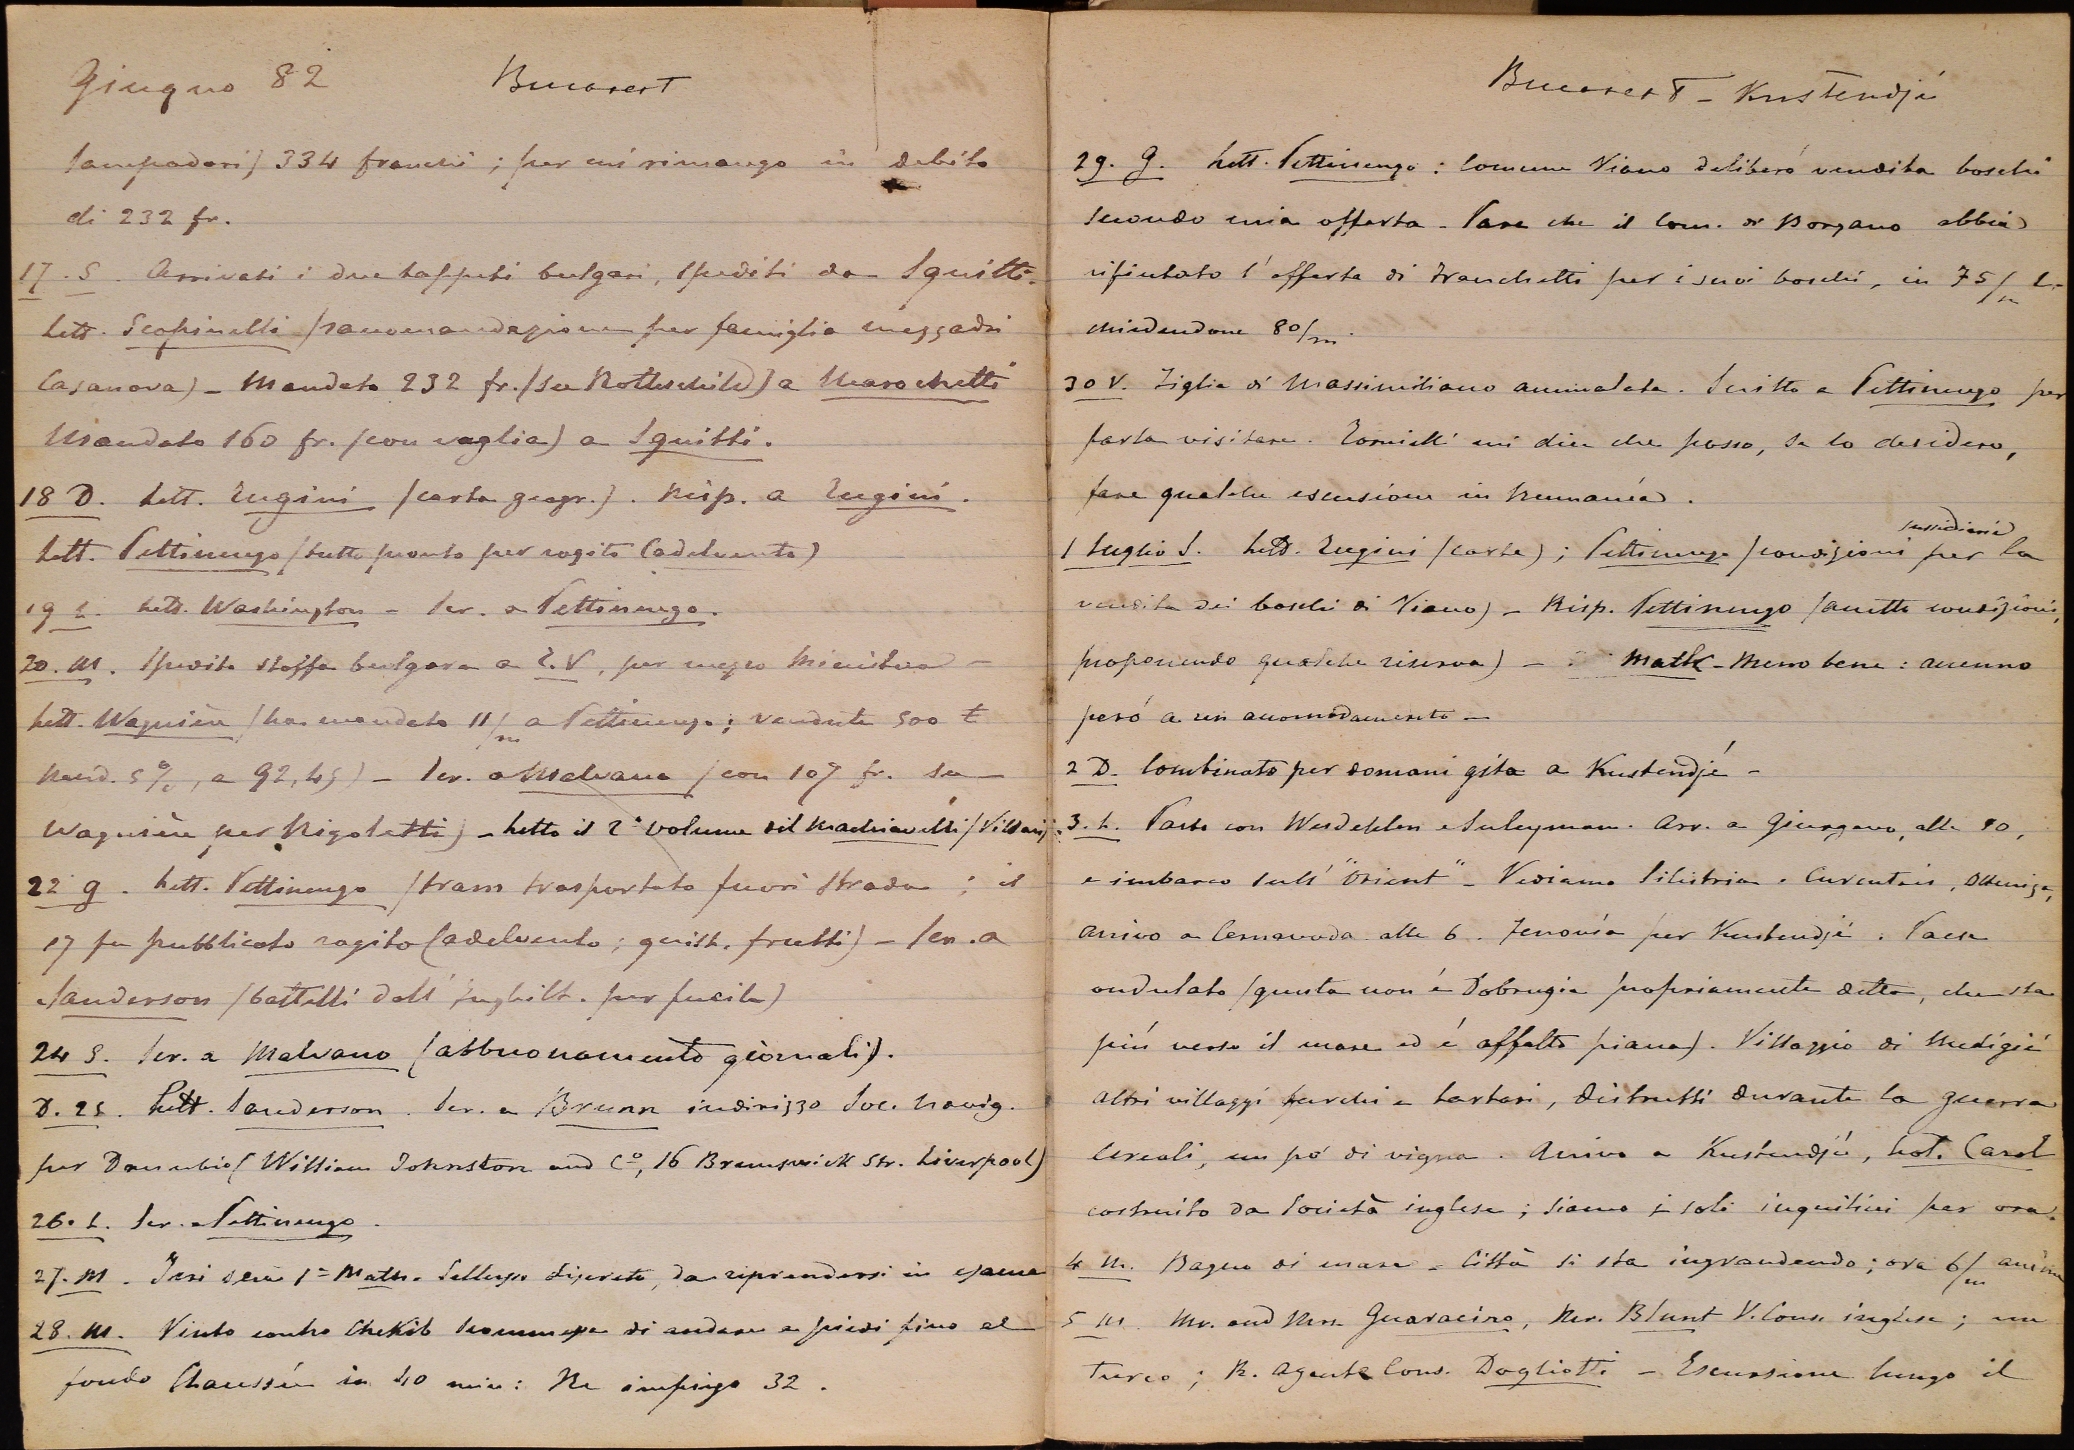 Giugno 82 Bucarest
lampadari) 334 franchi ; per cui rimango in debito
di 232 fr.
17. S. Arrivati i due tappeti bulgari, spediti da Squitti.
Lett. Scopinelli (raccomandazione per famiglia mezzadri
Casanova) - Mandato 232 fr. (su Rothschild) a Marochetti
Mandato 160 fr. (con vaglia) a Squitti.
18 D. Lett. Eugini (carta geogr.). Risp. a Eugini.
Lett. Pettinengo (tutto pronto per rogito Cadelvento)
19 L. Lett. Washington - Scr. a Pettinengo.
20. M. Spedita stoffa bulgara a E.V, per mezzo Ministero -
Lett. Wagnière (ha mandato 11/m a Pettinengo; vendute 500 £
rend. 5%, a 92,45) - Scr. a Malvano (con 107 fr. su
Wagnière per Rigoletti) - Letto il 2° volume del Machiavelli (Villari).
22 G. Lett. Pettinengo (tram trasportato fuori strada ; il
17 fu pubblicato rogito Cadelvento ; quist. frutti) - Scr. a
Sanderson (battelli dall' Inghilt. per fucile)
24 S. Scr. a Malvano (abbuonamento giornali).
D. 25. Lett. Sanderson. Scr. a Brunn indirizzo Soc. Navig.
per Danubio (William Johnston and C°, 16 Brunswick Str. Liverpool)
26. L. Scr. a Pettinengo.
27. M. Ieri sera 1= Math. discreto, da riprendersi in esame
28. M. Vinto contro Chekib scommessa di andare a piedi fino al
fondo Chaussée in 40 min: Ne impiego 32.
Bucarest - Kustendjé
29. G. Lett. Pettinengo : Comune Viano deliberó vendita boschi
secondo mia offerta. Pare che il Com. di Borzano abbia
rifiutato l'offerta di Franchetti per i suoi boschi, in 75/m L.
chiedendone 80/m.
30 V. Figlia di Massimiliano ammalata. Scritto a Pettinengo per
farla visitare. Tornielli mi dice che posso, se lo desidero,
fare qualche escursione in Rumania.
1 Luglio S. Lett. Eugini (carte) ; Pettinengo (condizioni sussidiarie per la
vendita dei boschi di Viano) - Risp. Pettinengo (accetto condizioni,
proponendo qualche riserva) - Math - Meno bene : accenno
peró a un accomodamento -
2 D. Combinato per domani gita a Kustendjé -
3. L. Parto con e Suleyman. Arr. a Giurgevo, alle 10,
e imbarco sull' "Orient" - Vediamo Silistria,
arrivo a Cernavoda alle 6. Ferrovia per Kustendjé. Paese
ondulato (questa non é Dobrugia propriamente detta, che sta
piú verso il mare ed é affatto piana). Villaggio di Medigié
altri villaggi turchi e tartari, distrutti durante la guerra
Cereali, un pó di vigna. Arrivo a Kustendjé, hot. Carol
costruito da Società inglese ; siamo i soli inquilini per ora.
4 M. Bagno di mare - Città si sta ingrandendo ; ora 6/m anime
5 M. Mr. and Mrs. Guaracino, Mr. Blunt V. Cons. inglese ; un
turco ; R. Agente Cons. Dogliotti - Escursione lungo il